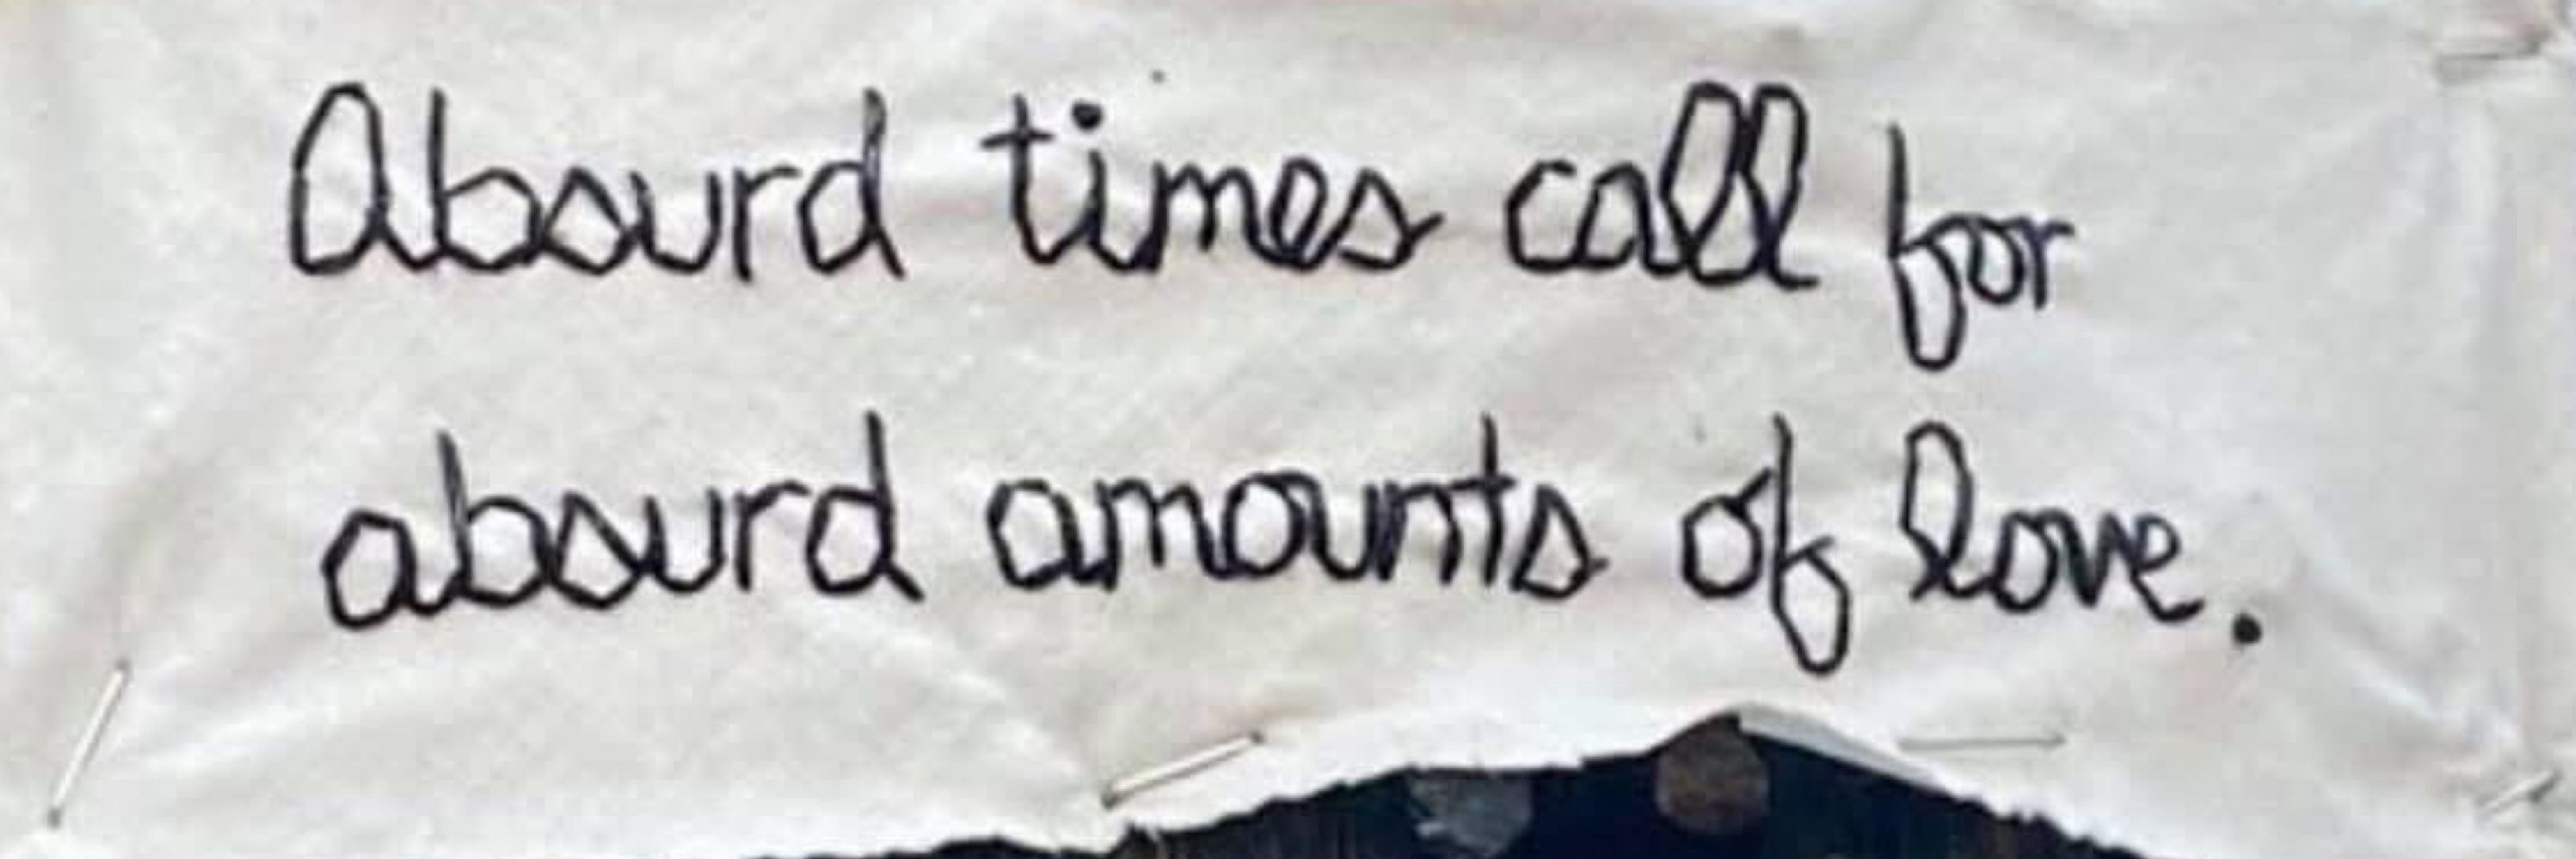 Absurd times call for
absurd amounts of love.